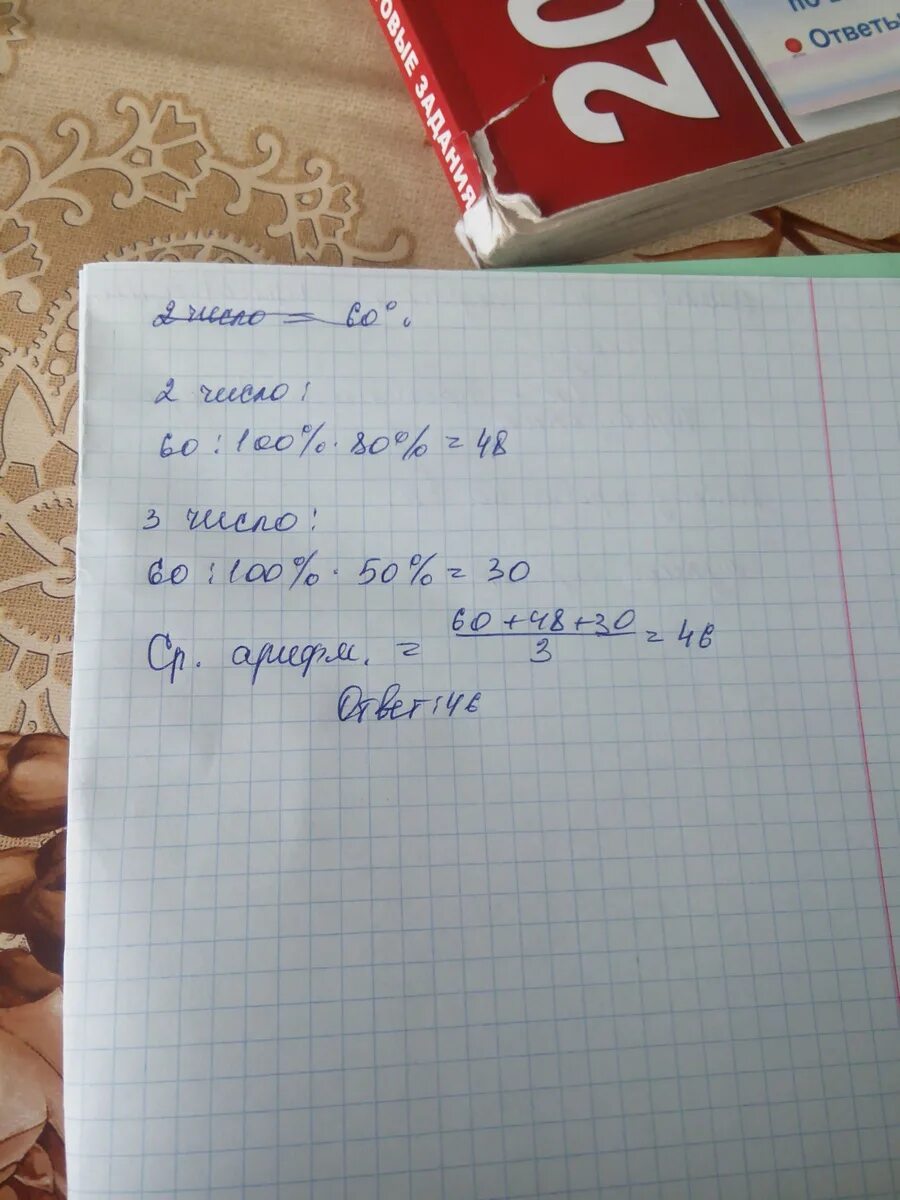 ОВЫЕ ЗАДАНИЯ
20
по
• Ответы
2 число = 60°.
2 число:
60 : 100% · 80% = 48
3 число:
60 : 100% · 50% = 30
Ср. арифм. = (60 + 48 + 30)/3 = 46
Ответ: 46